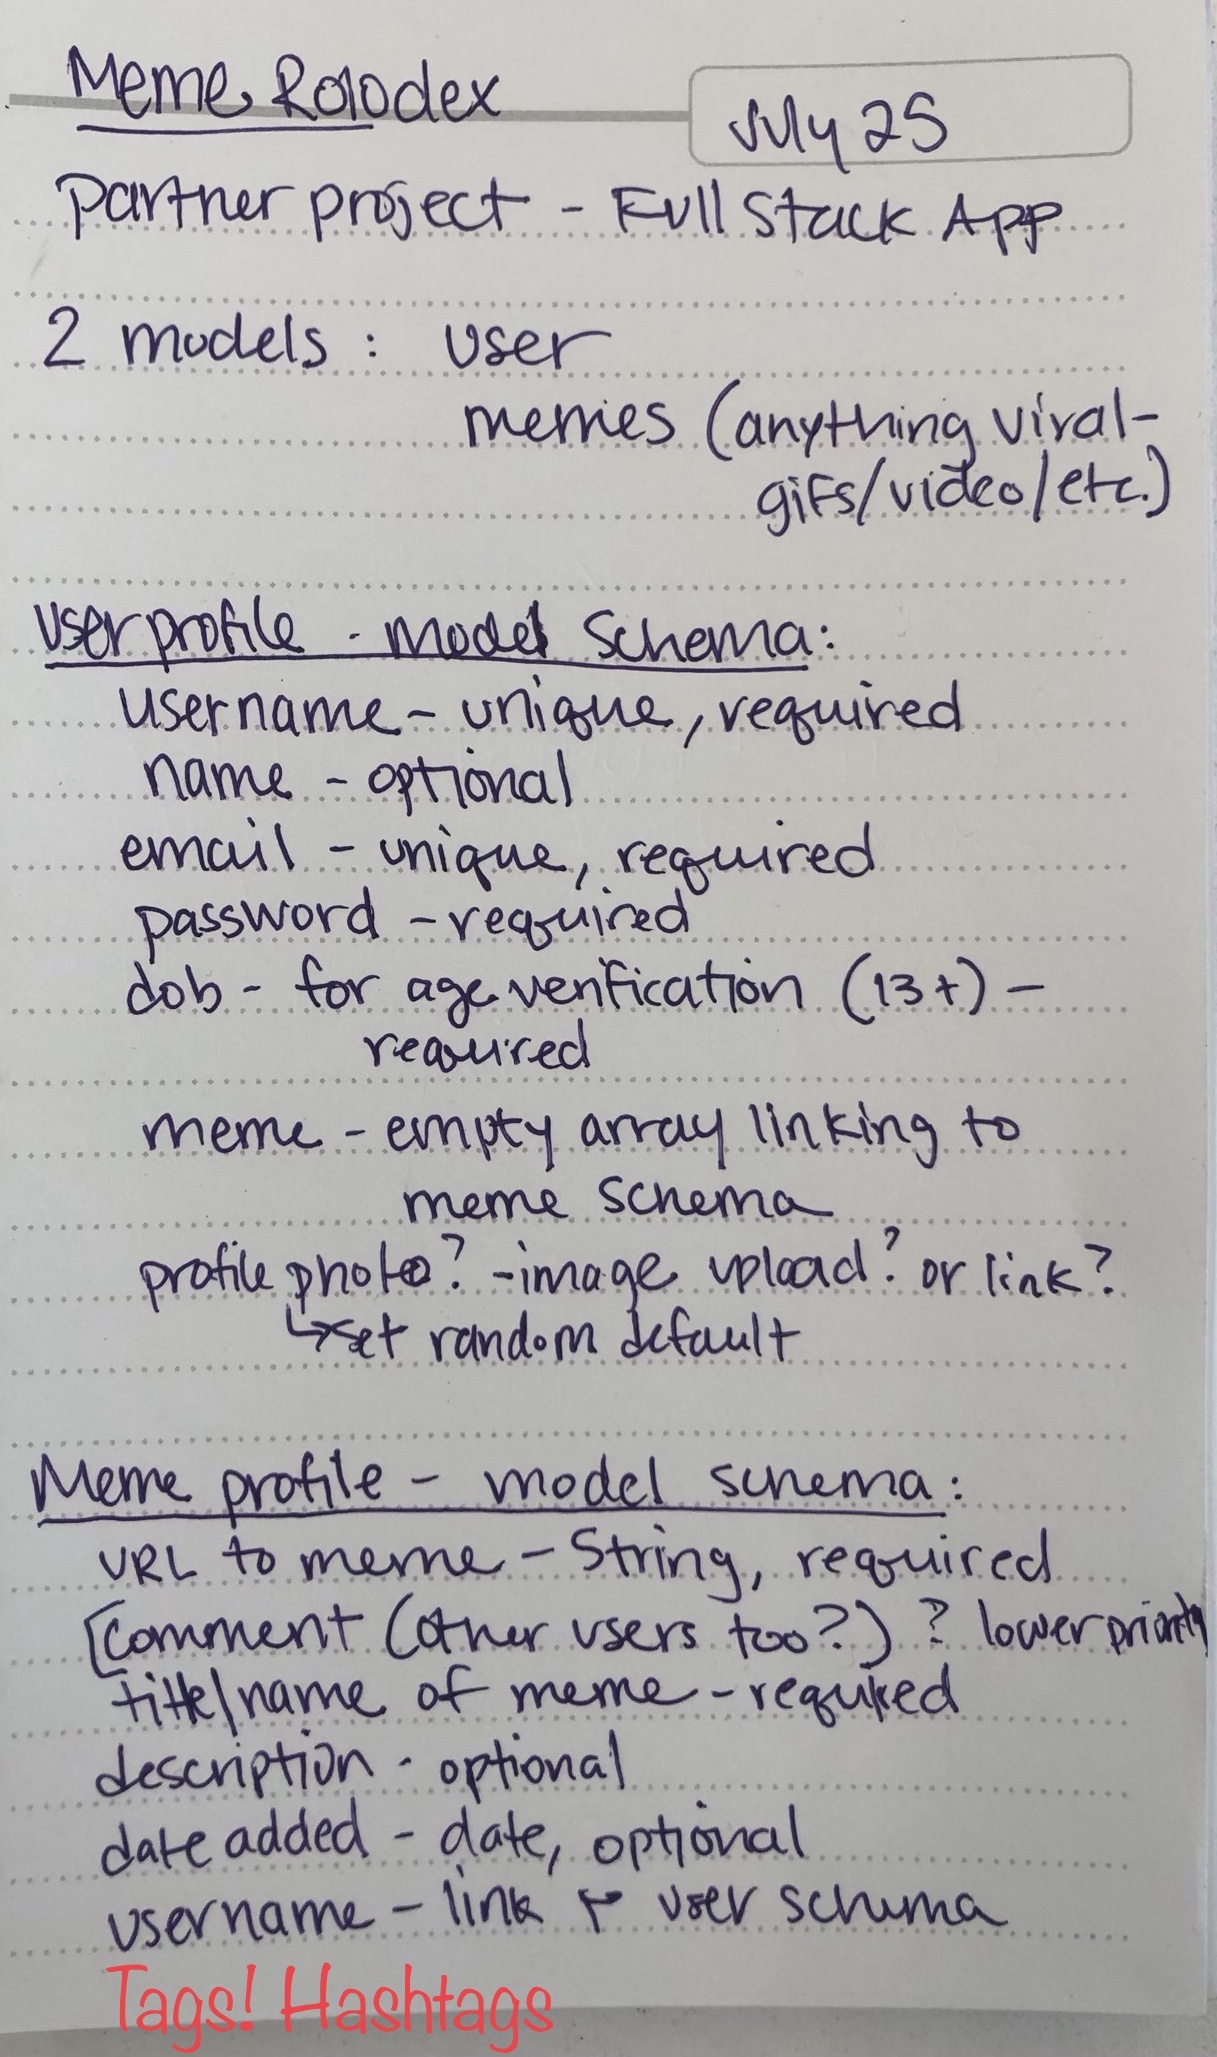 Meme Rolodex
July 25
Partner project - Full Stack App
2 models : User
memes (anything viral-
gifs/video/etc.)
User profile - model schema:
username - unique, required
name - optional
email - unique, required
password - required
dob - for age verification (13+) -
required
meme - empty array linking to
meme schema
profile photo? - image upload? or link?
↳ set random default
Meme profile - model schema:
URL to meme - String, required
[comment (other users too?) ? lower priority
title/name of meme - required
description - optional
date added - date, optional
username - link user schema
Tags! Hashtags